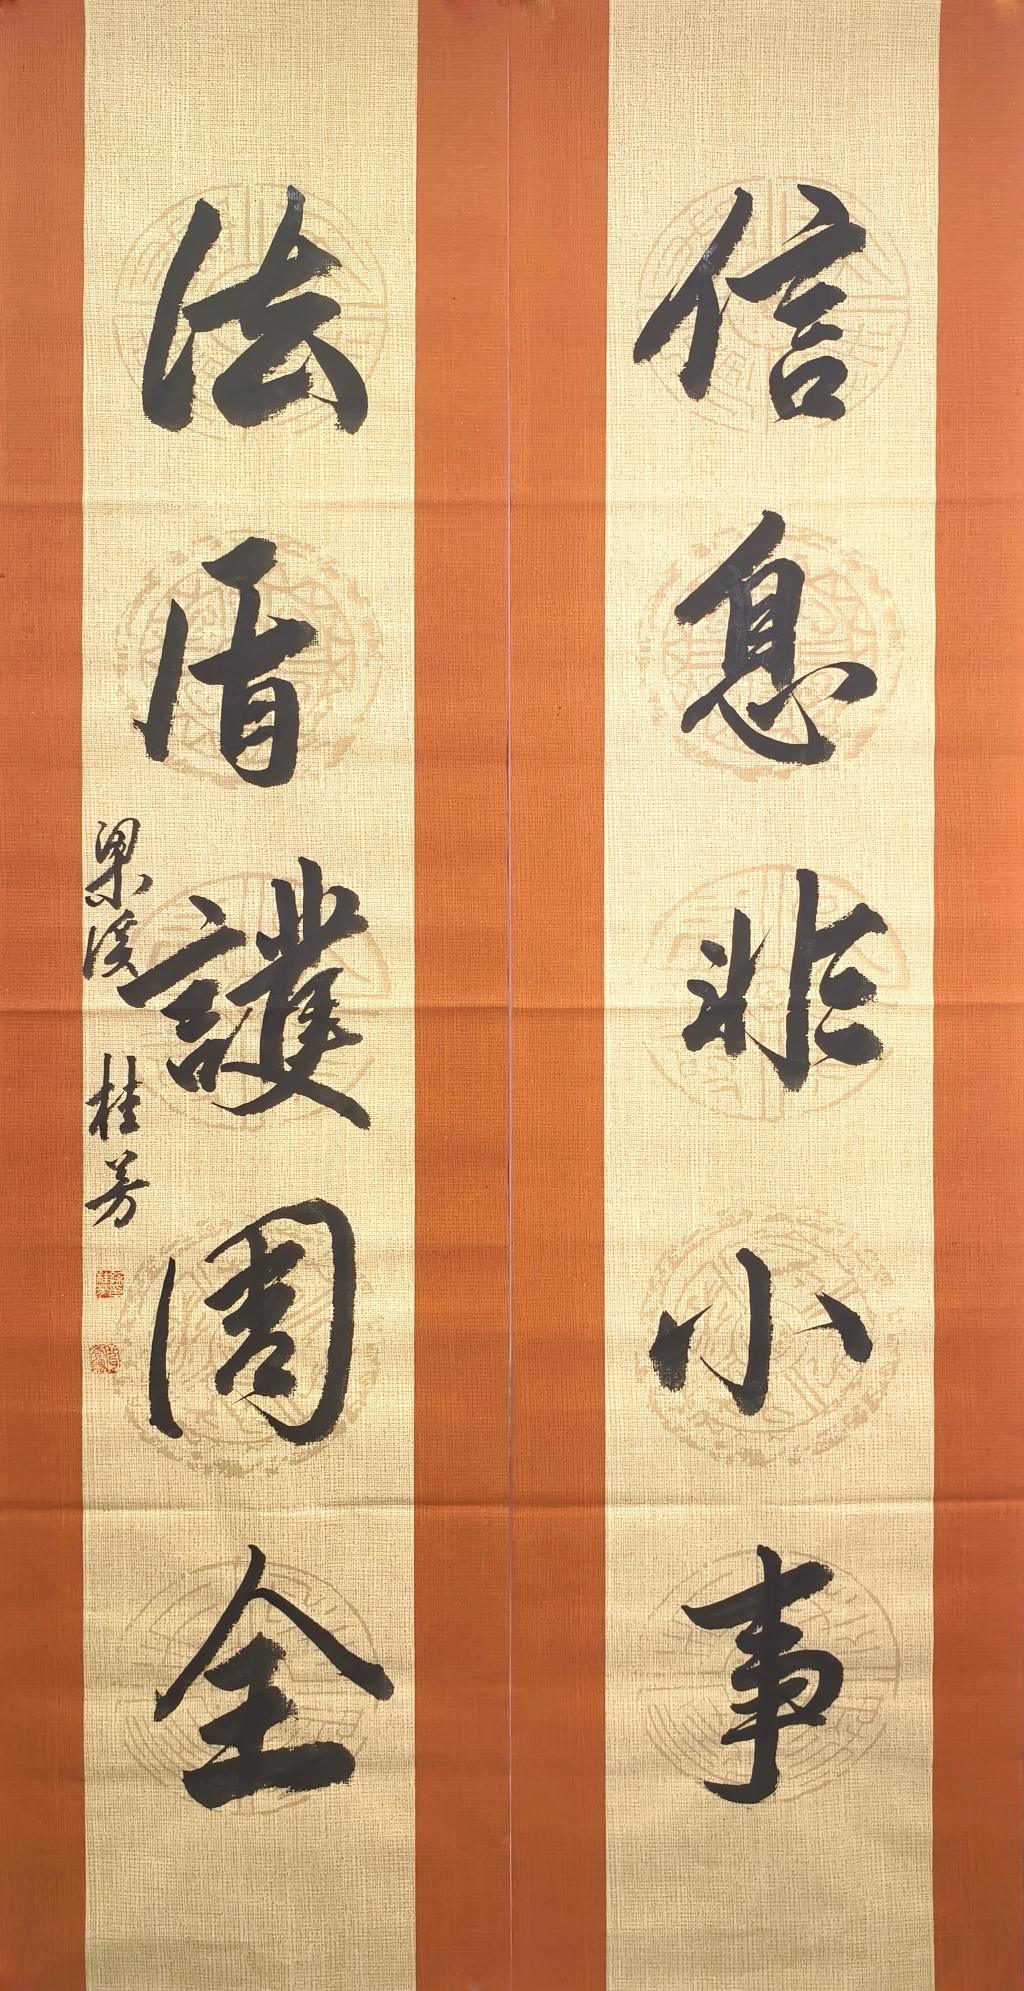 信息非小事
法盾護周全
梁溪 桂芳